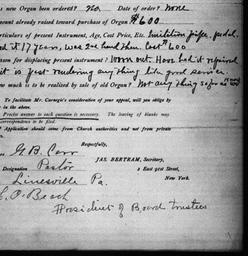 s new Organ been ordered? no. Date of order? none
resent already raised toward purchase of Organ $600
rticulars of present Instrument, Age, Cost Price, Etc. Imitation pipe. pedal.
d it 17 years, was 2nd hand then. Cost $600
eason for displacing present instrument? Worn out. Has had it repaired
it is just rendering anything like good service
ow much is to be realized by sale of old Organ? Not anything so far as
To facilitate Mr. Carnegie's consideration of your appeal, will you oblige by
Precise answer to each question is necessary. The leaving of blanks may
orrespondence to be filed.
Application should come from Church authorities and not from private
Respectfully,
G. B. Carr
JAS. BERTRAM, Secretary,
Designation Pastor
2 East 91st Street,
Linesville Pa.
New York.
C. P. Beach
President of Board trustees